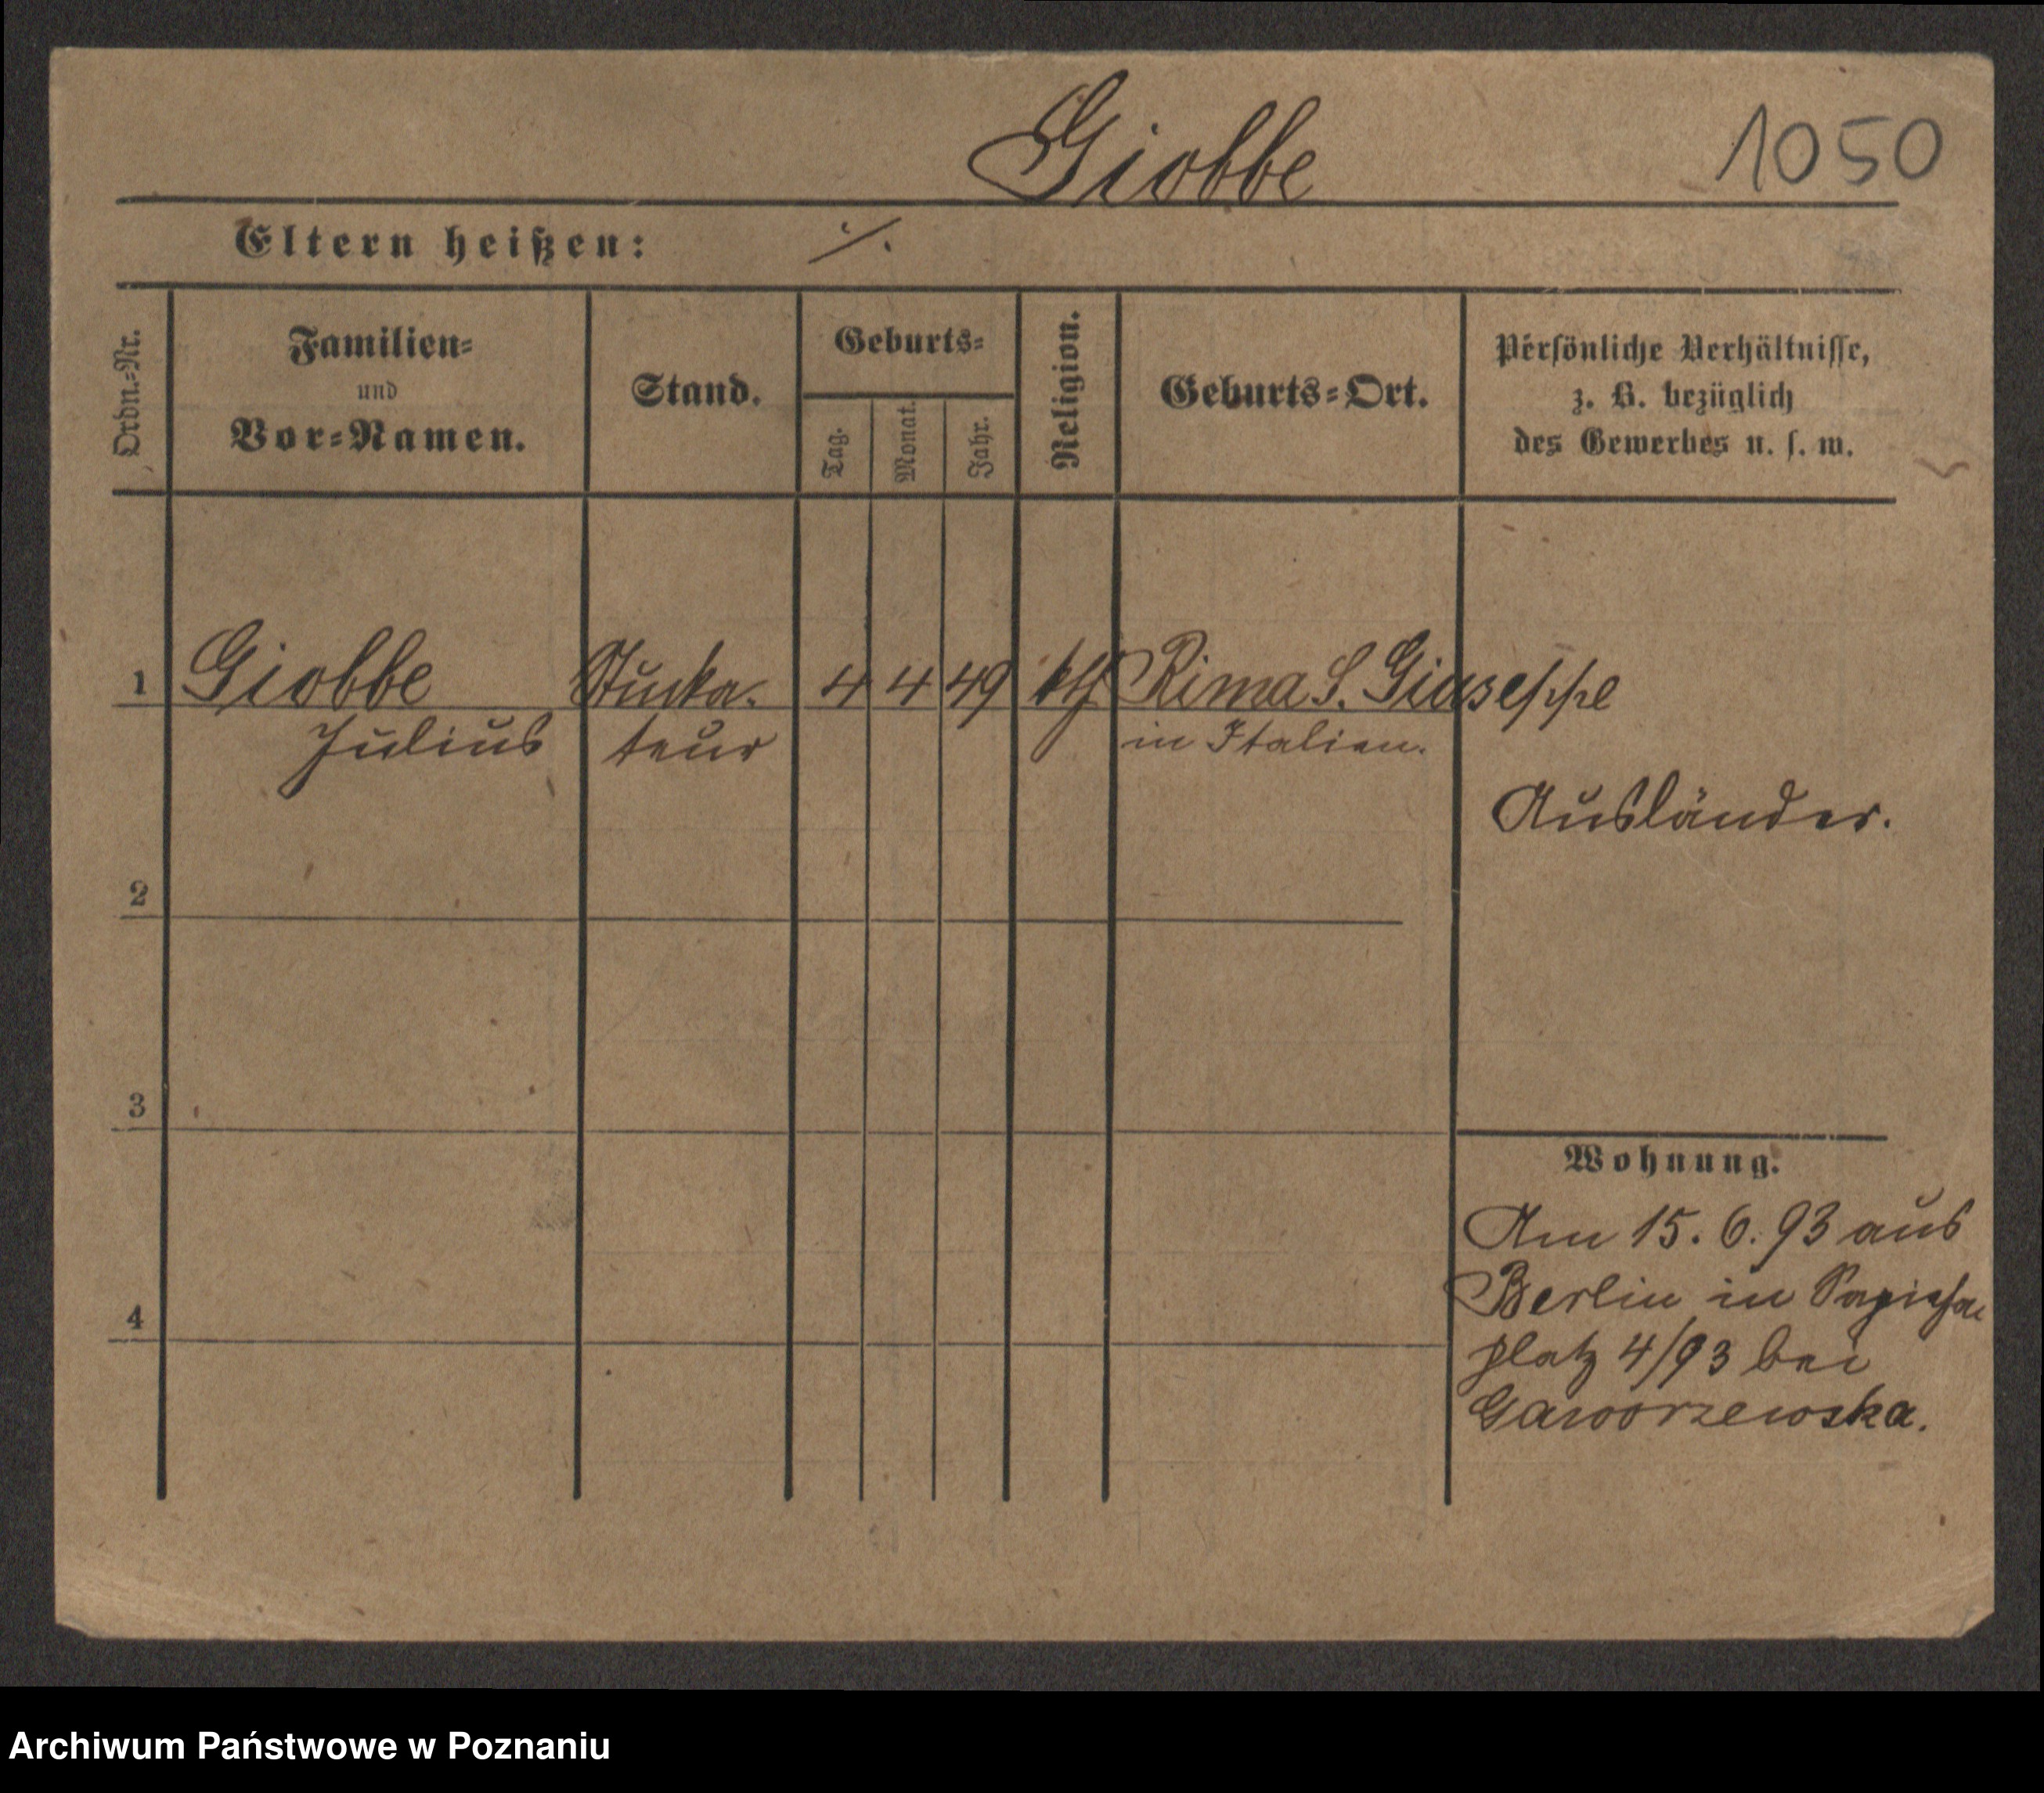 Giobbe 1050
Eltern heißen: ./.
Ordn.-Nr.
Familien-
und
Vor-Namen.
Stand.
Geburts-
Tag.
Monat.
Jahr.
Religion.
Geburts-Ort.
Persönliche Verhältnisse,
z. B. bezüglich
des Gewerbes u. s. w.
1 Giobbe Stucka- 4 4 49 kth Rima S. Giuseppe
Julius teur in Italien.
Ausländer.
2
3
Wohnung.
Am 15. 6. 93 aus
Berlin in Sapieha
4
platz 4/93 bei
Gaworzewska.
Archiwum Państwowe w Poznaniu